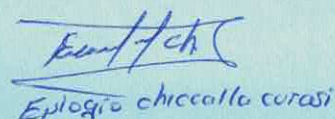 Eulogio chiccalla curasi